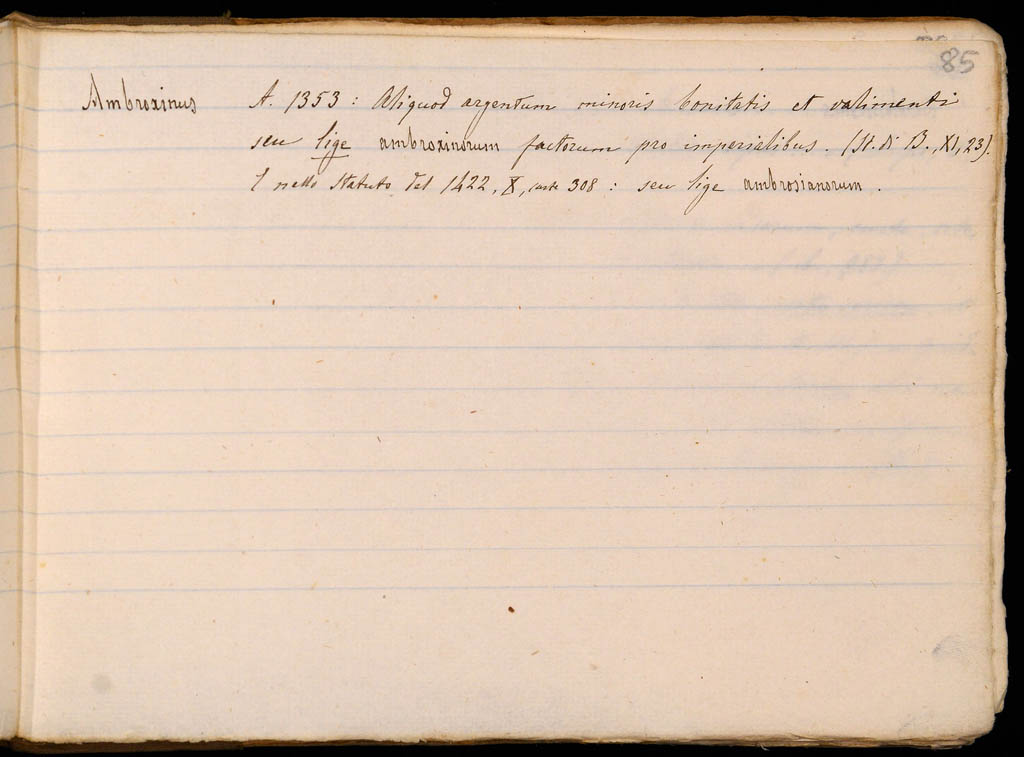 85
Ambroxinus A. 1353: Aliquod argentum minoris bonitatis et valimenti
seu lige ambroxinorum factorum pro imperialibus. (St. di B., XI, 23).
E nello Statuto del 1422, X, carte 308: seu lige ambrosianorum.